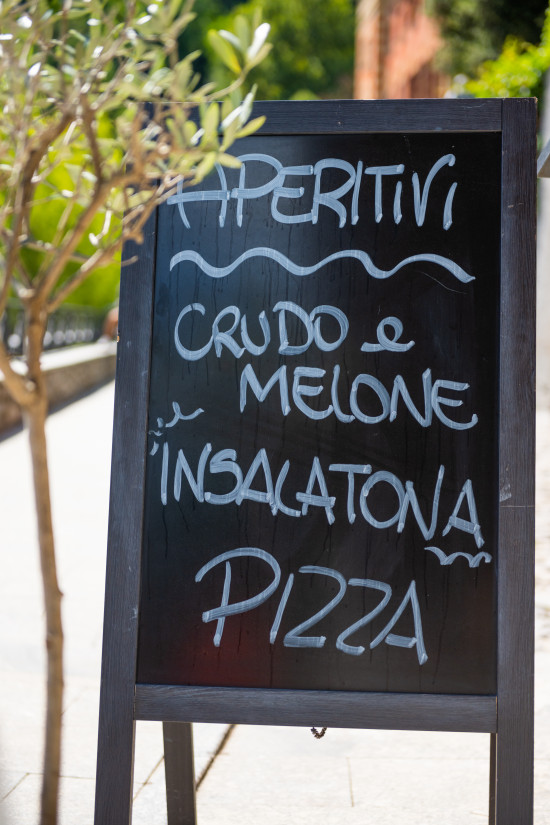 APERITIVI
CRUDO e
MELONE
INSALATONA
PIZZA